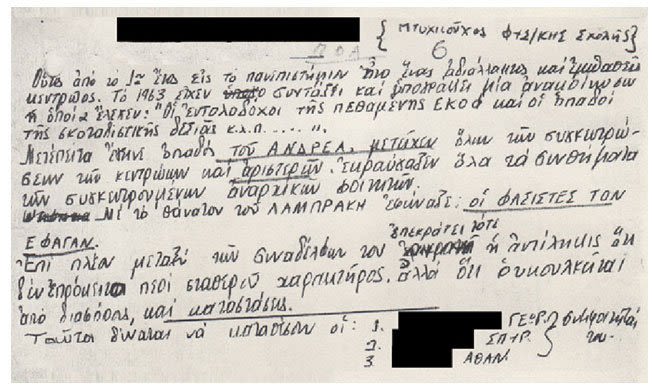 { Πτυχιοῦχος Φυσ/κῆς Σχολῆς }
6
Οὗτος ἀπό το 1ον ἔτος εἰς το πανεπιστήμιον ἦτο ἕνας ἀδιάλλακτος καί ἐμπαθέστ
κεντρῶος. Το 1963 εἶχεν συντάξει καί ὑπογράψει μία ἀνακοίνωσιν
ἡ ὁποία ἔλεγεν: "Οἱ ἐντολοδόχοι τῆς πεθαμένης ΕΚΟΦ καί οἱ ὀπαδοί
τῆς σκοταδιστικῆς δεξιᾶς κ.λ.π. ..... ".
Μετέπειτα ἔγινε ὀπαδός τοῦ ΑΝΔΡΕΑ, μετέχων ὅλων τῶν συγκεντρώ-
σεων τῶν κεντρώων καί ἀριστερῶν. Ἐκραύγαζεν ὅλα τά συνθήματα
τῶν συγκεντρουμένων ἀναρχικῶν φοιτητῶν.
Μέ τό θάνατον τοῦ ΛΑΜΠΡΑΚΗ ἐφώναζε: οἱ ΦΑΣΙΣΤΕΣ ΤΟΝ
ΕΦΑΓΑΝ.
Ἐπί πλέον μεταξύ τῶν συναδέλφων του ἐπεκράτει τότε ἡ ἀντίληψις ὅτι
δέν ἐπρόκειτο περί σταθεροῦ χαρακτῆρος, ἀλλά ὅτι
ἀπό διασήμους, καί καταστάσεις.
Ταῦτα δύναται νά καταθέσουν οἱ: 1. ΓΕΩΡΓ. συμφοιτηταί
2. ΣΠΥΡ. του.
3. ΑΘΑΝ.